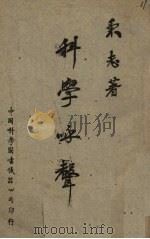 秉志著
科學呼聲
中國科學圖書儀器公司印行